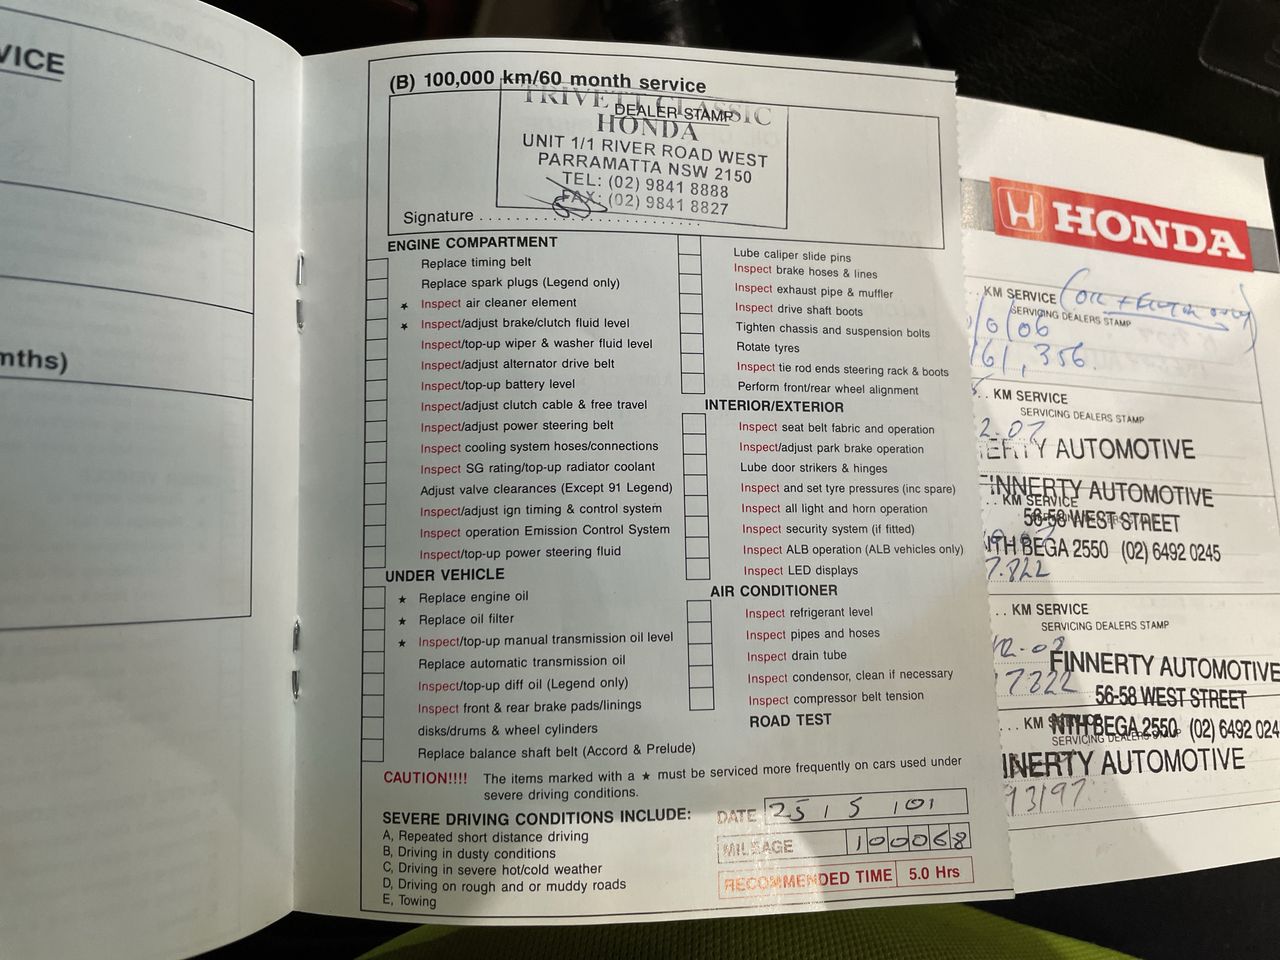 VICE
mths)
(B) 100,000 km/60 month service
TRIVETT CLASSIC
DEALER STAMP
HONDA
UNIT 1/1 RIVER ROAD WEST
PARRAMATTA NSW 2150
TEL: (02) 9841 8888
FAX: (02) 9841 8827
Signature
ENGINE COMPARTMENT
Replace timing belt
Replace spark plugs (Legend only)
★ Inspect air cleaner element
★ Inspect/adjust brake/clutch fluid level
Inspect/top-up wiper & washer fluid level
Inspect/adjust alternator drive belt
Inspect/top-up battery level
Inspect/adjust clutch cable & free travel
Inspect/adjust power steering belt
Inspect cooling system hoses/connections
Inspect SG rating/top-up radiator coolant
Adjust valve clearances (Except 91 Legend)
Inspect/adjust ign timing & control system
Inspect operation Emission Control System
Inspect/top-up power steering fluid
UNDER VEHICLE
★ Replace engine oil
★ Replace oil filter
★ Inspect/top-up manual transmission oil level
Replace automatic transmission oil
Inspect/top-up diff oil (Legend only)
Inspect front & rear brake pads/linings
disks/drums & wheel cylinders
Replace balance shaft belt (Accord & Prelude)
Lube caliper slide pins
Inspect brake hoses & lines
Inspect exhaust pipe & muffler
Inspect drive shaft boots
Tighten chassis and suspension bolts
Rotate tyres
Inspect tie rod ends steering rack & boots
Perform front/rear wheel alignment
INTERIOR/EXTERIOR
Inspect seat belt fabric and operation
Inspect/adjust park brake operation
Lube door strikers & hinges
Inspect and set tyre pressures (inc spare)
Inspect all light and horn operation
Inspect security system (if fitted)
Inspect ALB operation (ALB vehicles only)
Inspect LED displays
AIR CONDITIONER
Inspect refrigerant level
Inspect pipes and hoses
Inspect drain tube
Inspect condensor, clean if necessary
Inspect compressor belt tension
ROAD TEST
CAUTION!!!! The items marked with a ★ must be serviced more frequently on cars used under
severe driving conditions.
SEVERE DRIVING CONDITIONS INCLUDE:
A, Repeated short distance driving
B, Driving in dusty conditions
C, Driving in severe hot/cold weather
D, Driving on rough and or muddy roads
E, Towing
DATE 25 / 5 / 01
MILEAGE 100068
RECOMMENDED TIME 5.0 Hrs
HONDA
KM SERVICE (oil + filter only)
SERVICING DEALERS STAMP
/06
161,356.
KM SERVICE
SERVICING DEALERS STAMP
2.07
NERTY AUTOMOTIVE
FINNERTY AUTOMOTIVE
KM SERVICE
56-58 WEST STREET
NTH BEGA 2550 (02) 6492 0245
7.822
KM SERVICE
SERVICING DEALERS STAMP
FINNERTY AUTOMOTIVE
7822
56-58 WEST STREET
KM SERVICE
NTH BEGA 2550 (02) 6492 024
SERVICING DEALERS STAMP
INNERTY AUTOMOTIVE
93197